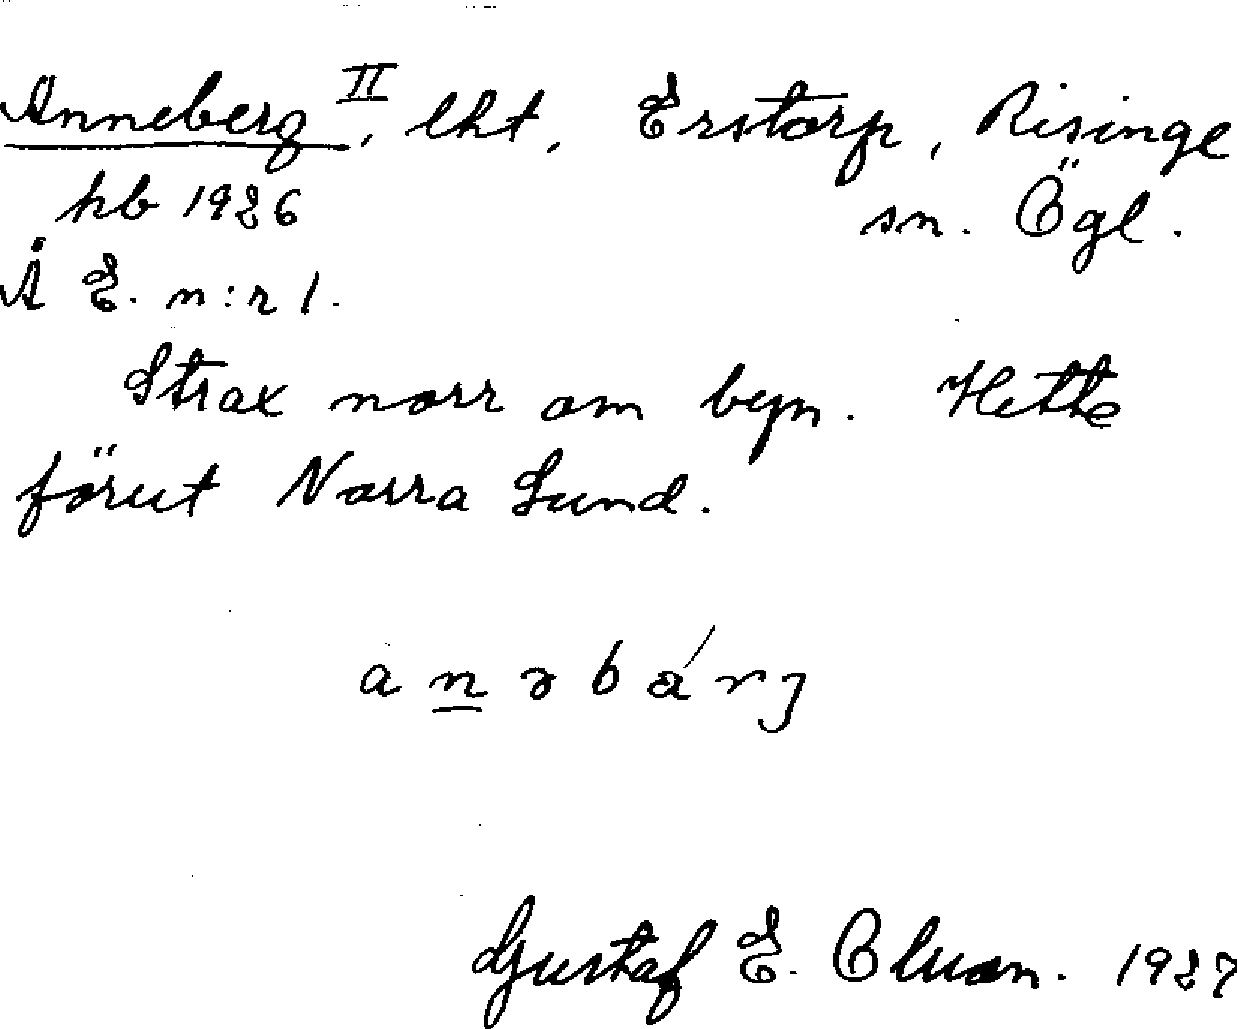 Anneberg II, lht, Erstorp, Risinge
hb 1926 sn. Ögl.
Å E. n:r 1.
Strax norr om byn. Hette
förut Norra Lund.
anəbárj
Gustaf E. Oluson. 1927